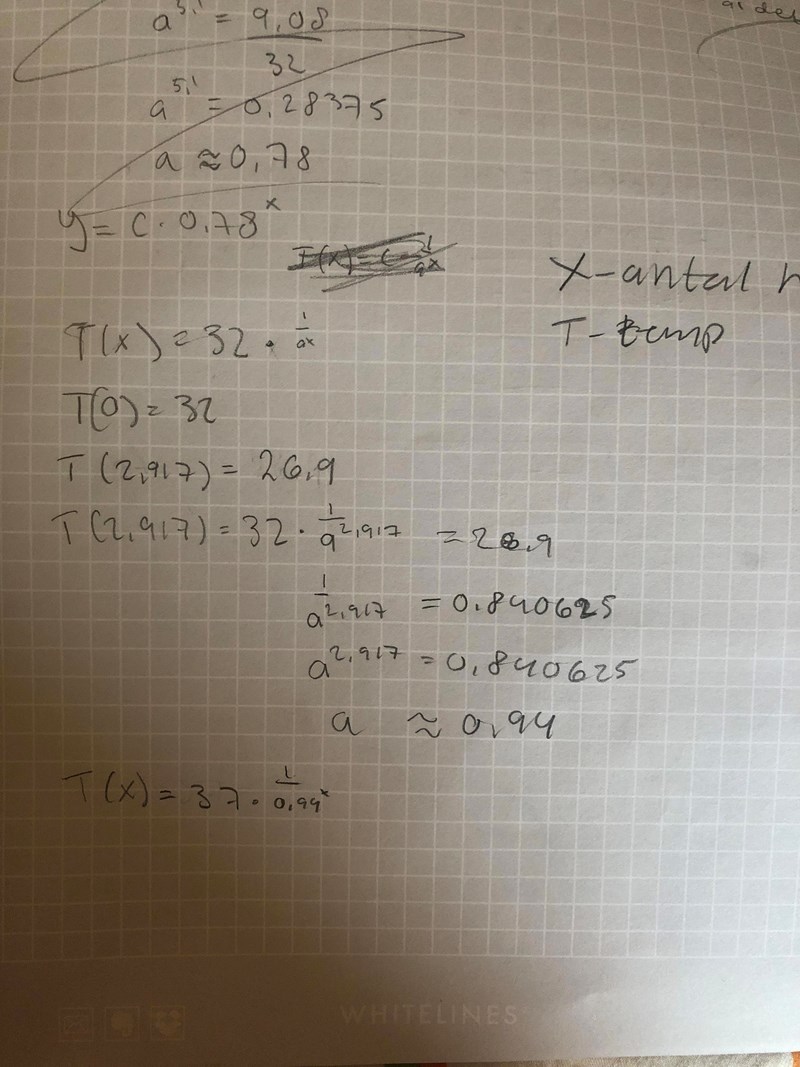 a^5,1 = 9,08/32
a^5,1 = 0,28375
a ≈ 0,78
y = C · 0,78^x
X-antal
T(x) = 32 · 1/a^x
T-temp
T(0) = 32
T(2,917) = 26,9
T(2,917) = 32 · 1/a^2,917 = 26,9
1/a^2,917 = 0.840625
a^2,917 = 0,840625
a ≈ 0,94
T(x) = 37 · 1/0,94^x
WHITELINES